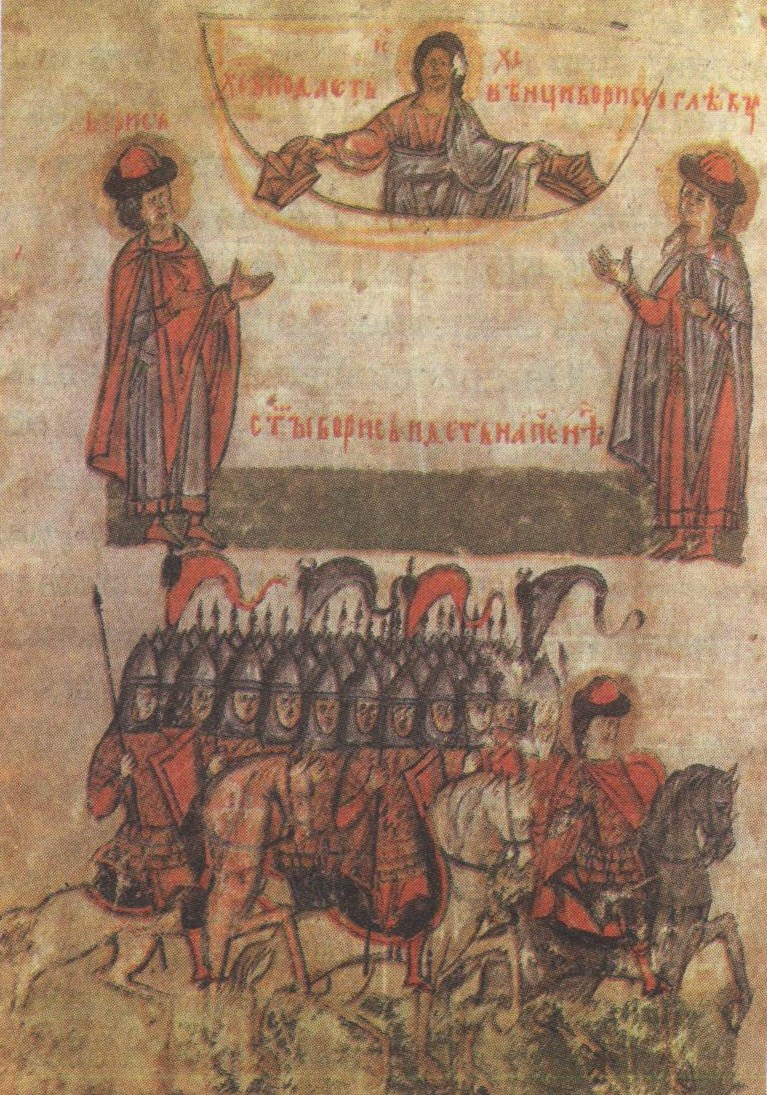 І҃С Х҃С
Х҃ЄѠПОДАЄТЬ ВѢНЦИ БОРИСУ И ГЛѢБУ
БОРИСЪ
СТ҃ЫИ БОРИСЪ ИДЕТЬ НА ПЕЧЕНѢГ